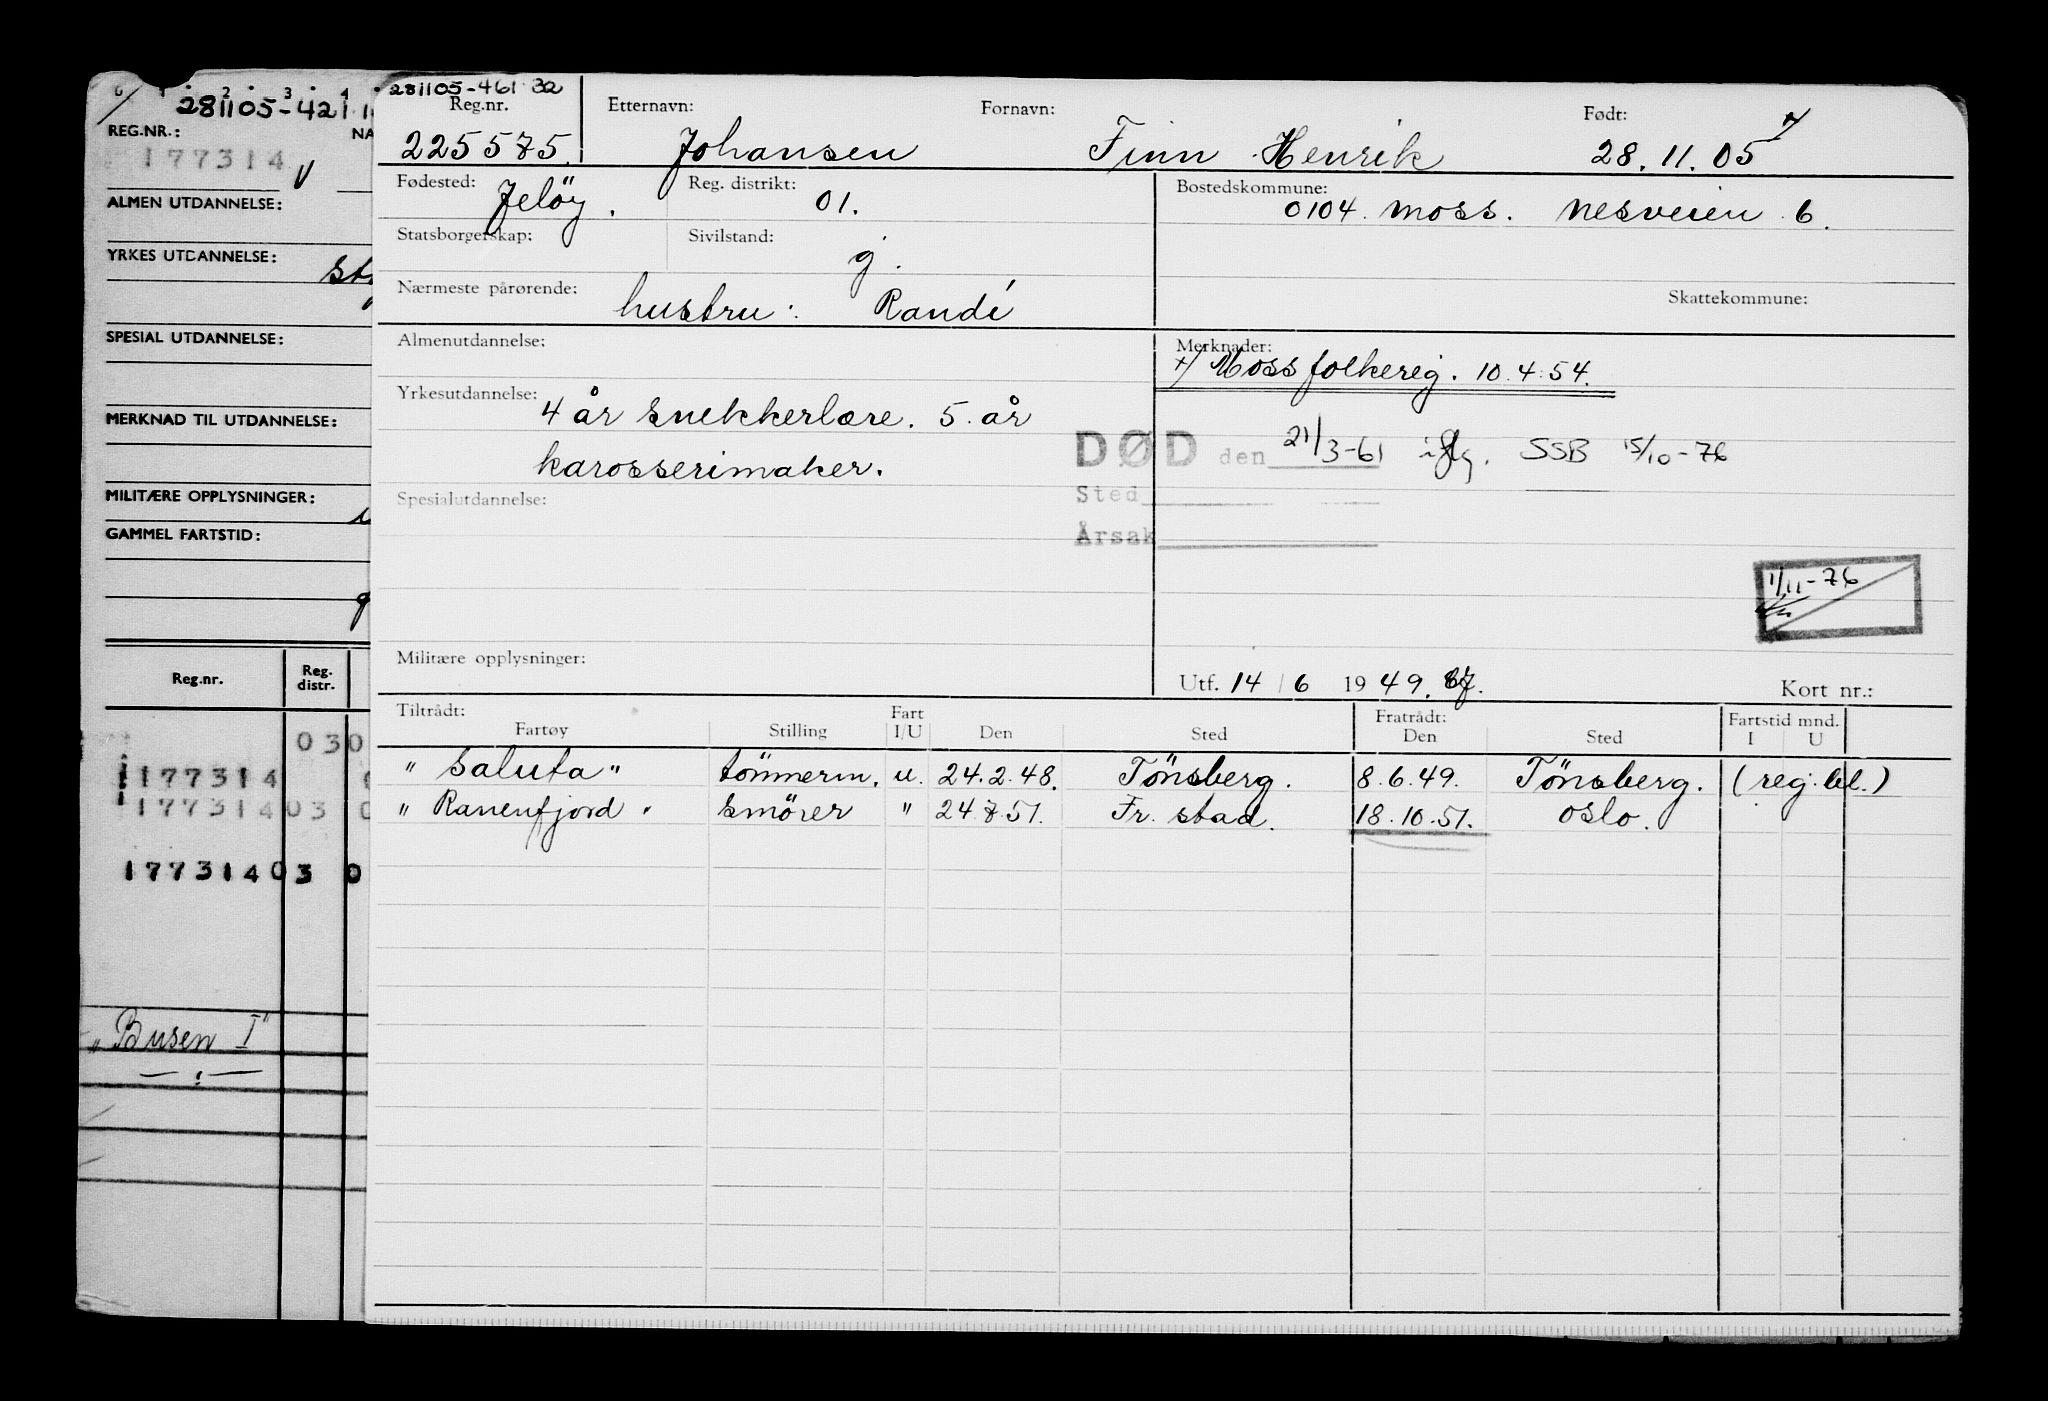 281105-421
REG.NR.: NA
177314 V
ALMEN UTDANNELSE:
YRKES UTDANNELSE:
SPESIAL UTDANNELSE:
MERKNAD TIL UTDANNELSE:
MILITÆRE OPPLYSNINGER:
GAMMEL FARTSTID:
Reg.nr. Reg. distr.
030
177314
17731403
17731403 0
"Busen I"
281105-461 32
Reg.nr. Etternavn: Fornavn: Født:
225575. Johansen Finn Henrik 28.11.05
Fødested: Jeløy. Reg. distrikt: 01. Bostedskommune: 0104. Moss. Nesveien 6.
Statsborgerskap: Sivilstand: g.
Nærmeste pårørende: hustru: Randi Skattekommune:
Almenutdannelse: Merknader:
x) Moss folkereg. 10.4.54.
Yrkesutdannelse: 4 år snekkerlære. 5 år
karosserimaker.
DØD den 21/3-61 iflg. SSB 15/10-76
Spesialutdannelse: Sted
Årsak
1/11-76
Militære opplysninger:
Utf. 14/6 1949. Kort nr.:
Tiltrådt: Fart Fratrådt: Fartstid mnd.
Fartøy Stilling I/U Den Sted Den Sted I U
"Saluta" tömmerm. u. 24.2.48. Tönsberg. 8.6.49. Tönsberg. (reg.bl.)
"Ranenfjord" smörer " 24.8.51. Fr. stad. 18.10.51. Oslo.